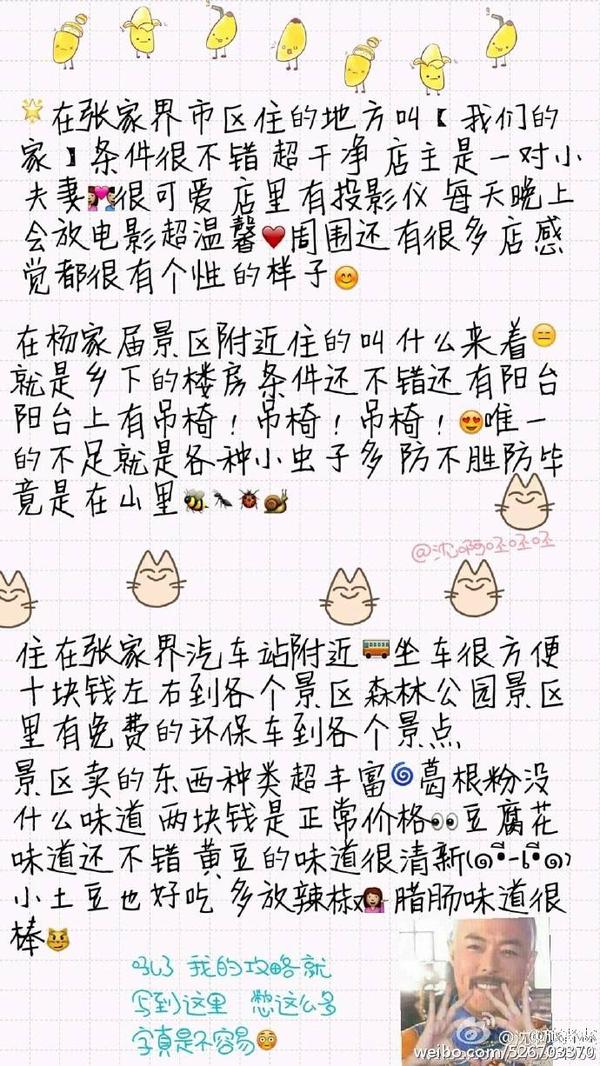 🌟在张家界市区住的地方叫【我们的
家】条件很不错 超干净 店主是一对小
夫妻💑很可爱 店里有投影仪 每天晚上
会放电影超温馨❤周围还有很多店感
觉都很有个性的样子😊
在杨家届景区附近住的叫什么来着😑
就是乡下的楼房 条件还不错还有阳台
阳台上有吊椅！吊椅！吊椅！😍唯一
的不足就是各种小虫子多 防不胜防毕
竟是在山里🐝🐜🐞🐌
@沈啊呸呸呸
住在张家界汽车站附近🚌坐车很方便
十块钱左右到各个景区 森林公园景区
里有免费的环保车到各个景点
景区卖的东西种类超丰富🌀葛根粉没
什么味道 两块钱是正常价格👀豆腐花
味道还不错 黄豆的味道很清新
小土豆也好吃 多放辣椒💁腊肠味道很
棒😼
我的攻略就
写到这里 憋这么多
字真是不容易😳
weibo.com/526703370